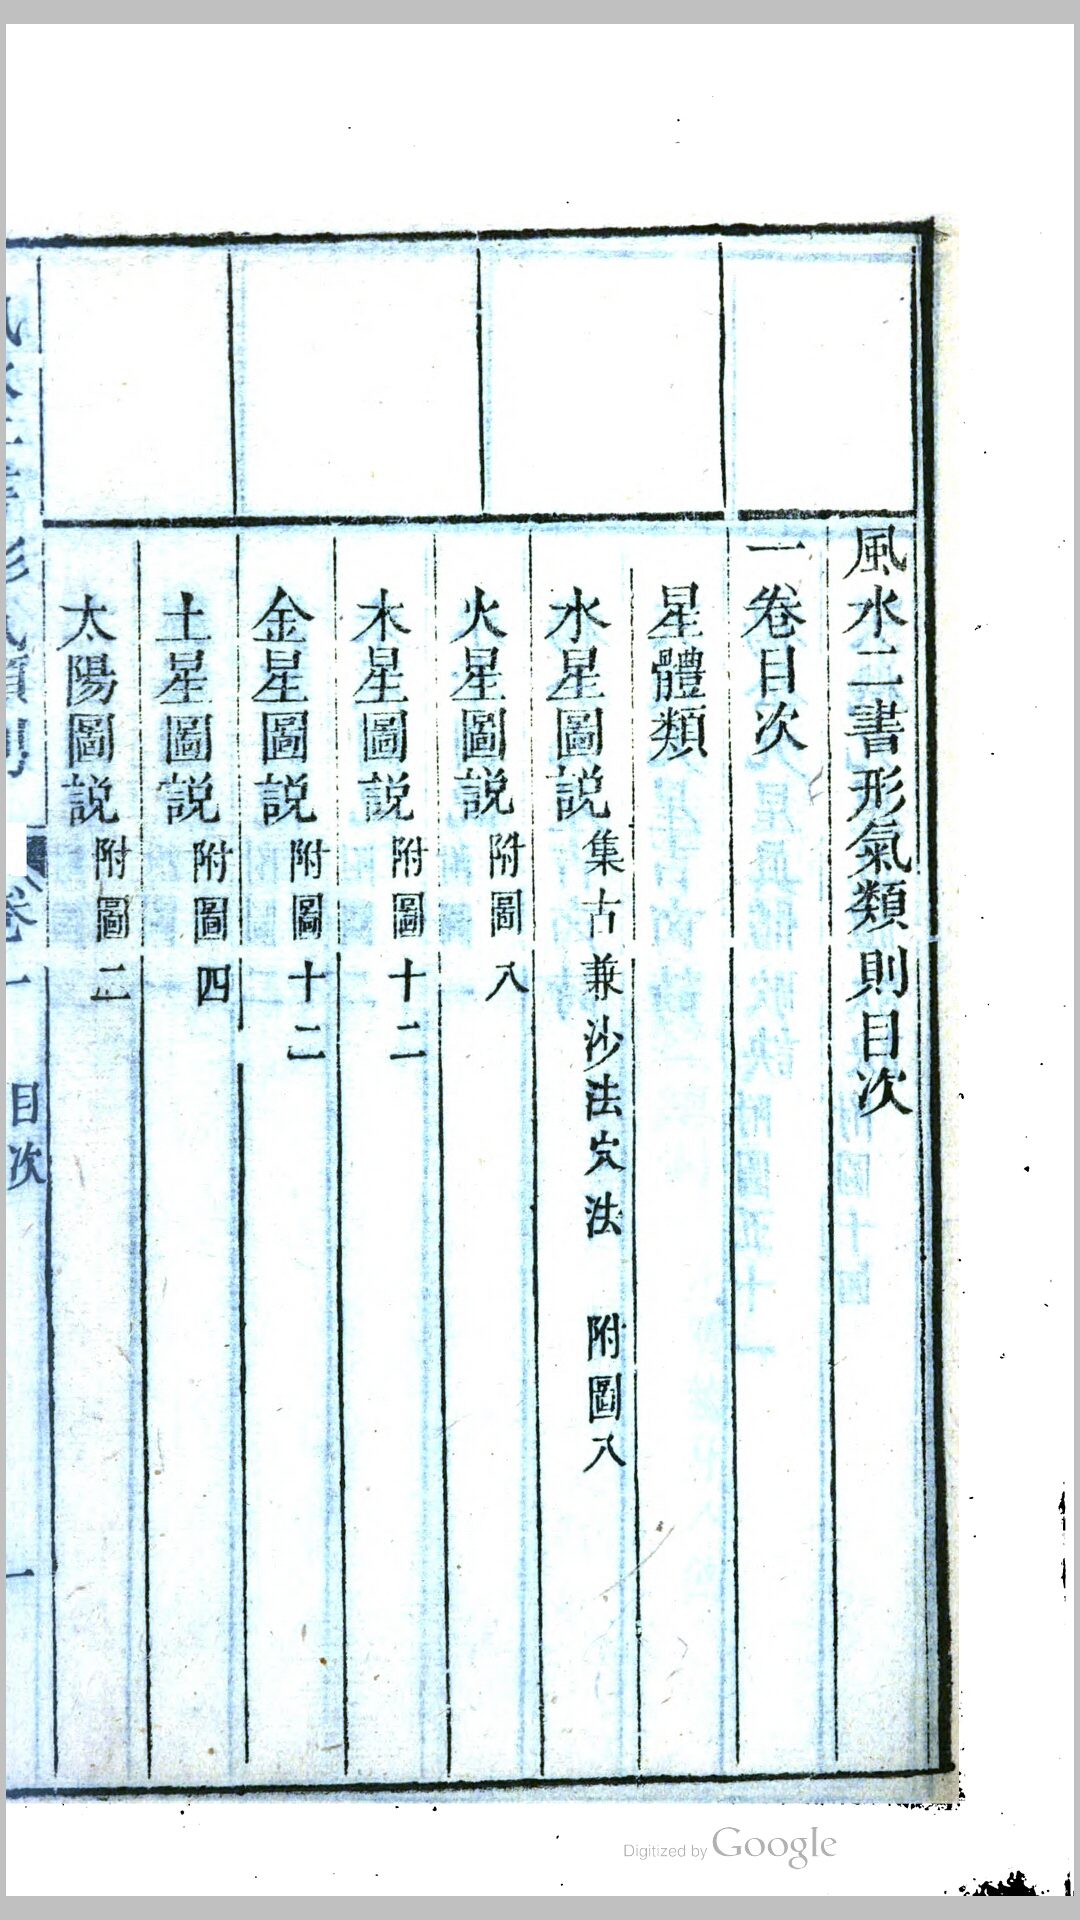 風水二書形氣類則目次
一卷目次
星體類
水星圖説 集古兼沙法穴法 附圖八
火星圖説 附圖八
木星圖説 附圖十二
金星圖説 附圖十二
土星圖説 附圖四
太陽圖説 附圖二
卷一 目次 一
Digitized by Google